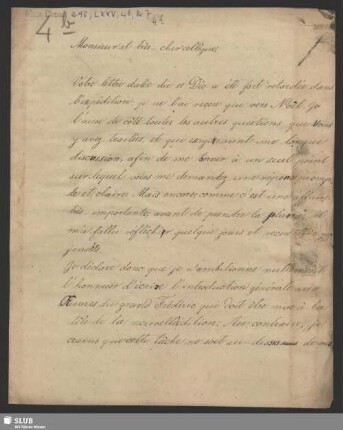 4b
Monsieur et très-cher collègue,
Votre lettre datée du 2 Dec a été fort retardée dans
l'expédition, je ne l'ai reçue que vers Noël. Je
laisse de côté toutes les autres questions que vous
y avez traitées, et qui exigeraient une longue
discussion, afin de me borner à un seul point
sur lequel vous me demandez une réponse promp-
te et claire. Mais encore, comme c'est une affaire
très importante, avant de prendre la plume, il
m'a fallu réfléchir quelques jours et
Je déclare donc que je n'ambitionne nullement
l'honneur d'écrire l'introduction générale aux
Œuvres du grand Frédéric qui doit être mise à la
tête de la nouvelle édition. Au contraire, je
crains que cette tâche ne soit au-dessus de
SLUB